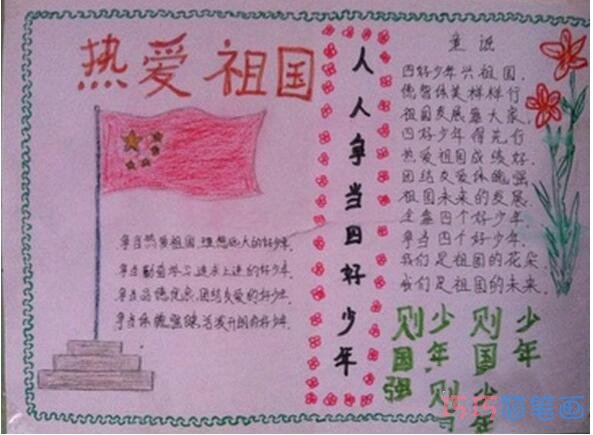 热爱祖国
争当热爱祖国,理想远大的好少年,
争当勤奋学习,追求上进的好少年,
争当品德优良,团结友爱的好少年,
争当体魄强健,活泼开朗的好少年.
人人争当四好少年
童谣
四好少年兴祖国,
德智体美样样行
祖国发展靠大家,
四好少年得先行
热爱祖国成绩好,
团结友爱体魄强
祖国未来的发展,
全靠四个好少年,
争当四个好少年,
我们是祖国的花朵,
我们是祖国的未来,
少年
则国
少年
则
少年
则国强
巧巧简笔画